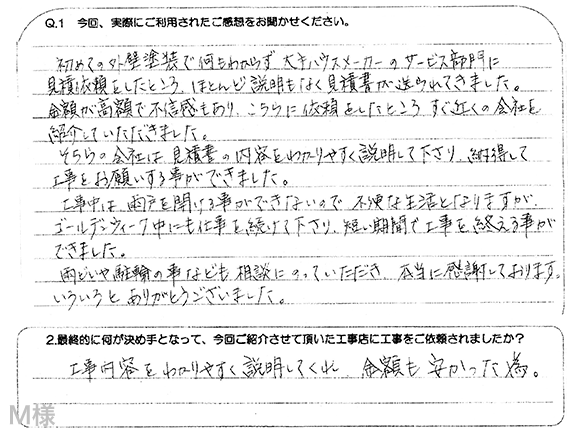 Q.1 今回、実際にご利用されたご感想をお聞かせください。
初めての外壁塗装で何もわからず、大手ハウスメーカーのサービス部門に
見積依頼をしたところ、ほとんど説明もなく見積書が送られてきました。
金額が高額で不信感もあり、こちらに依頼をしたところ すぐ近くの会社を
紹介していただきました。
そちらの会社は見積書の内容をわかりやすく説明して下さり、納得して
工事をお願いする事ができました。
工事中は、雨戸を開ける事ができないので 不便な生活となりますが、
ゴールデンウィーク中にも仕事を続けて下さり、短い期間で工事を終える事が
できました。
雨どいや駐輪の事なども相談にのっていただき、本当に感謝しております。
いろいろと ありがとうございました。
2.最終的に何が決め手となって、今回ご紹介させて頂いた工事店に工事をご依頼されましたか?
工事内容をわかりやすく説明してくれ、金額も安かった為。
M様